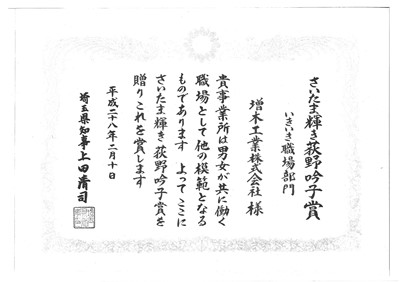 さいたま輝き荻野吟子賞
いきいき職場部門
増木工業株式会社 様
貴事業所は男女が共に働く
職場として他の模範となる
ものであります よってここに
さいたま輝き荻野吟子賞を
贈りこれを賞します
平成二十八年二月十日
埼玉県知事 上田清司